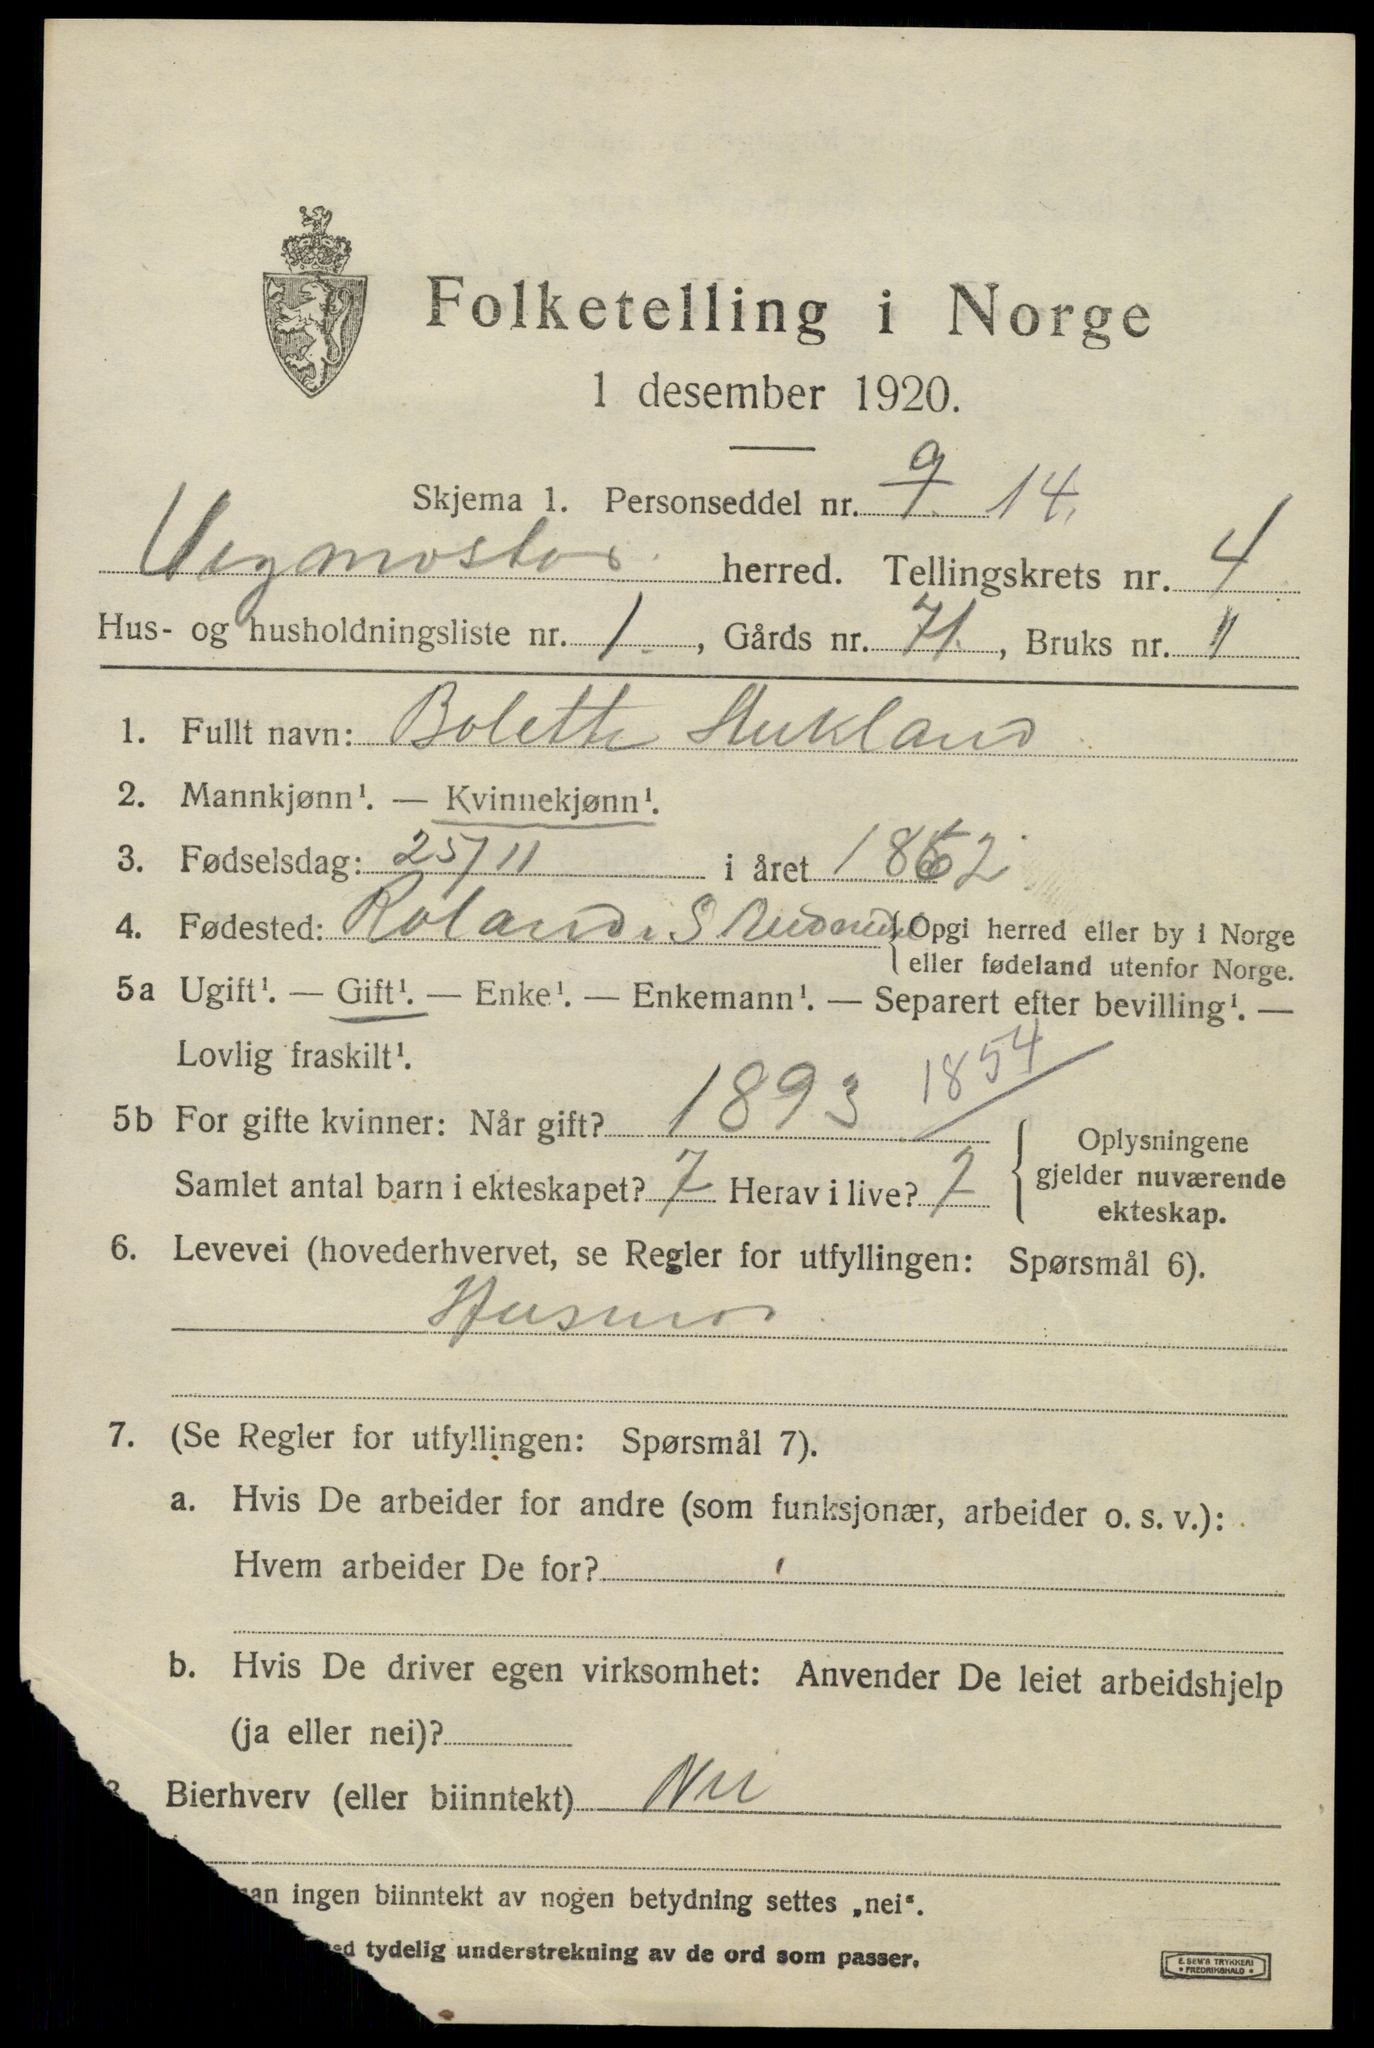 Folketelling i Norge
1 desember 1920.
Skjema 1. Personseddel nr. 9/9. 14.
Vegmostad herred. Tellingskrets nr. 4
Hus- og husholdningsliste nr. 1., Gårds nr. 71., Bruks nr. 11
1. Fullt navn: Bolette Stukland
2. Mannkjønn¹. — Kvinnekjønn¹.
3. Fødselsdag: 25/11 i året 1862
4. Fødested: Roland. S. Audnedal {Opgi herred eller by i Norge
eller fødeland utenfor Norge.
5a Ugift¹. — Gift¹. — Enke¹. — Enkemann¹. — Separert efter bevilling¹. —
Lovlig fraskilt¹.
5b For gifte kvinner: Når gift? 1893 1854
Samlet antal barn i ekteskapet? 7 Herav i live? 7
{Oplysningene
gjelder nuværende
ekteskap.
6. Levevei (hovederhvervet, se Regler for utfyllingen: Spørsmål 6).
Husmor
7. (Se Regler for utfyllingen: Spørsmål 7).
a. Hvis De arbeider for andre (som funksjonær, arbeider o. s. v.):
Hvem arbeider De for?
b. Hvis De driver egen virksomhet: Anvender De leiet arbeidshjelp
(ja eller nei)?
Bierhverv (eller biinntekt) Nei
man ingen biinntekt av nogen betydning settes „nei“.
tydelig understrekning av de ord som passer.
E. SEM'S TRYKKERI
• FREDRIKSHALD •